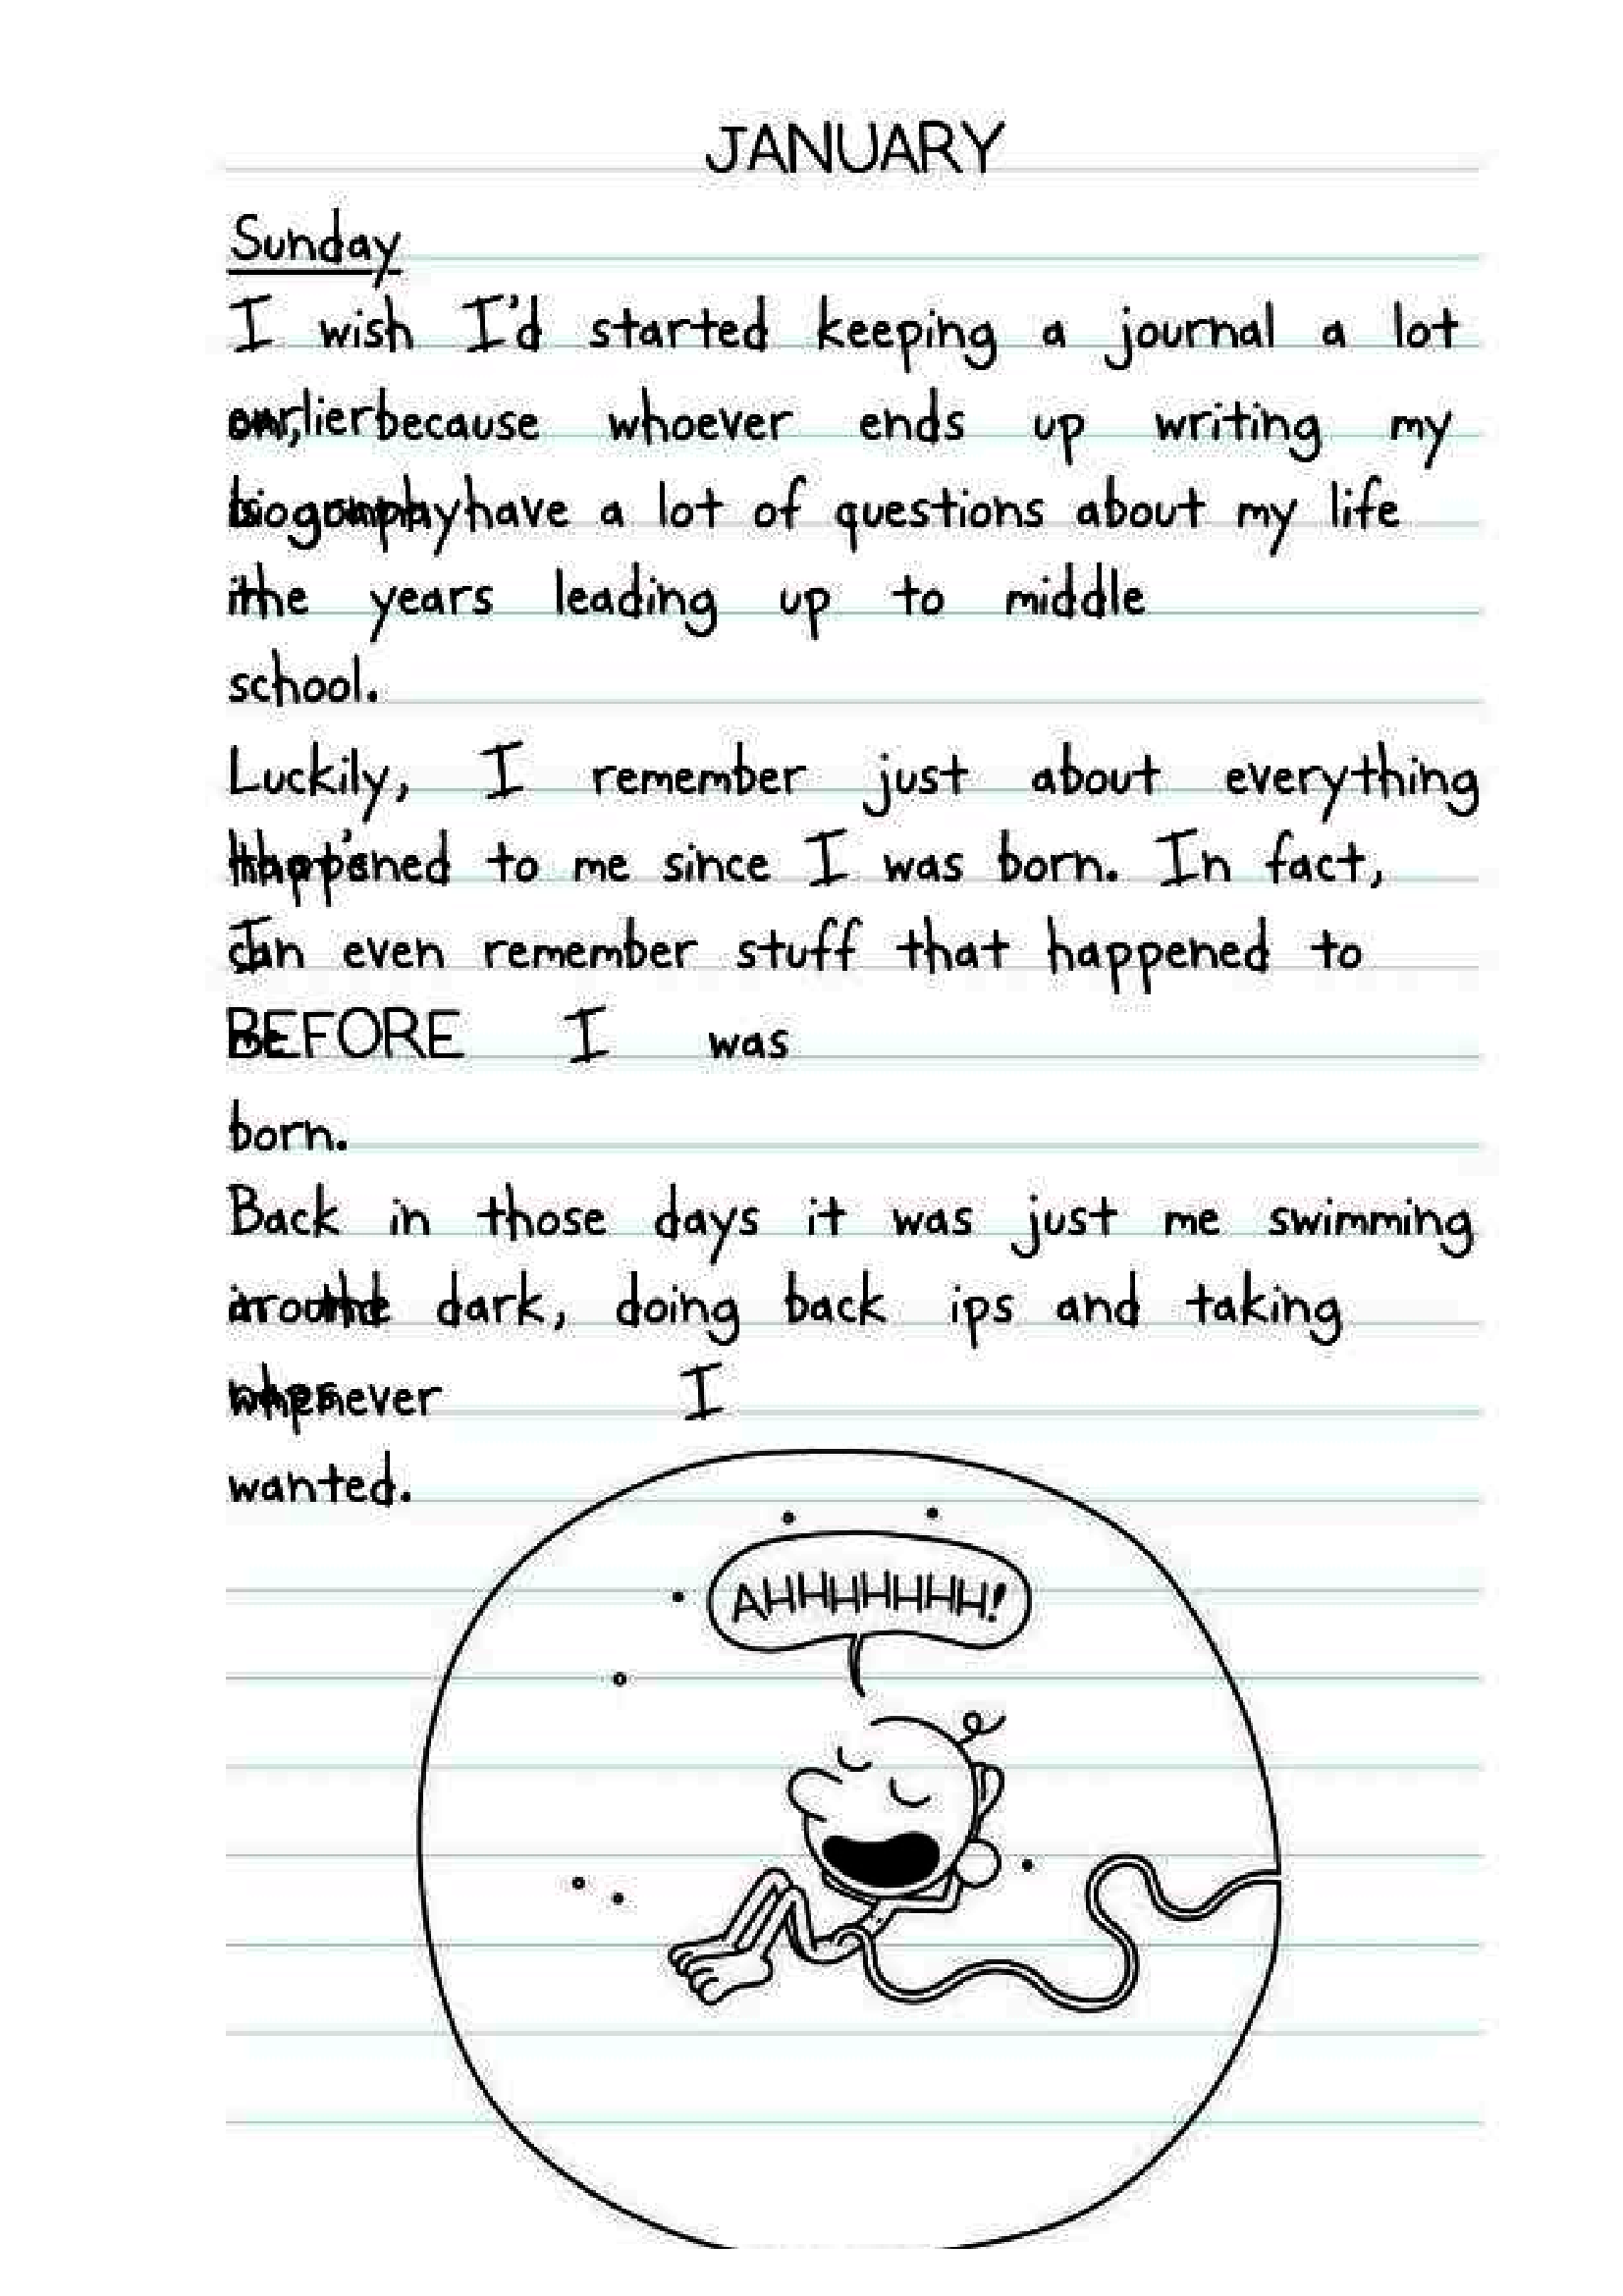 JANUARY
Sunday
I wish I'd started keeping a journal a lot
because whoever ends up writing my
have a lot of questions about my life
the years leading up to middle
school.
Luckily, I remember just about everything
happened to me since I was born. In fact,
can even remember stuff that happened to
BEFORE I was
born.
Back in those days it was just me swimming
dark, doing back ips and taking
whenever I
wanted.
AHHHHHHH!